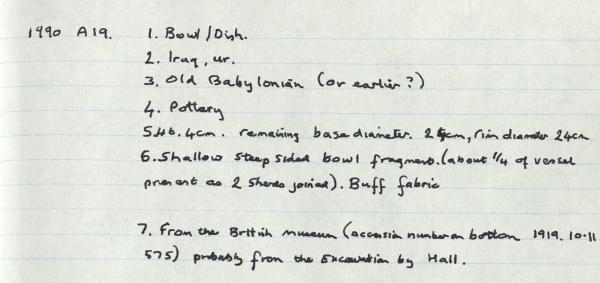 1990 A19. 1. Bowl/Dish.
2. Iraq, ur.
3. Old Babylonian (or earlier?)
4. Pottery
5. Ht. 4cm. remaining base diameter. cm, rim diameter 24cm
6. Shallow steep sided bowl fragment. (about 1/4 of vessel
present as 2 Sherds joined). Buff fabric
7. From the British museum (accession number on bottom 1919. 10.11
575) probably from the Excavation by Hall.